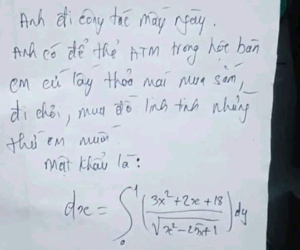 Anh đi công tác mấy ngày.
Anh có để thẻ ATM trong hóc bàn
em cứ lấy thỏa mái mua sắm,
đi chơi, mua đồ linh tinh những
thứ em muốn
Mật khẩu là:
dx = ∫₀¹ ( (3x² + 2x + 18) / √(x² - 25x + 1) ) dy